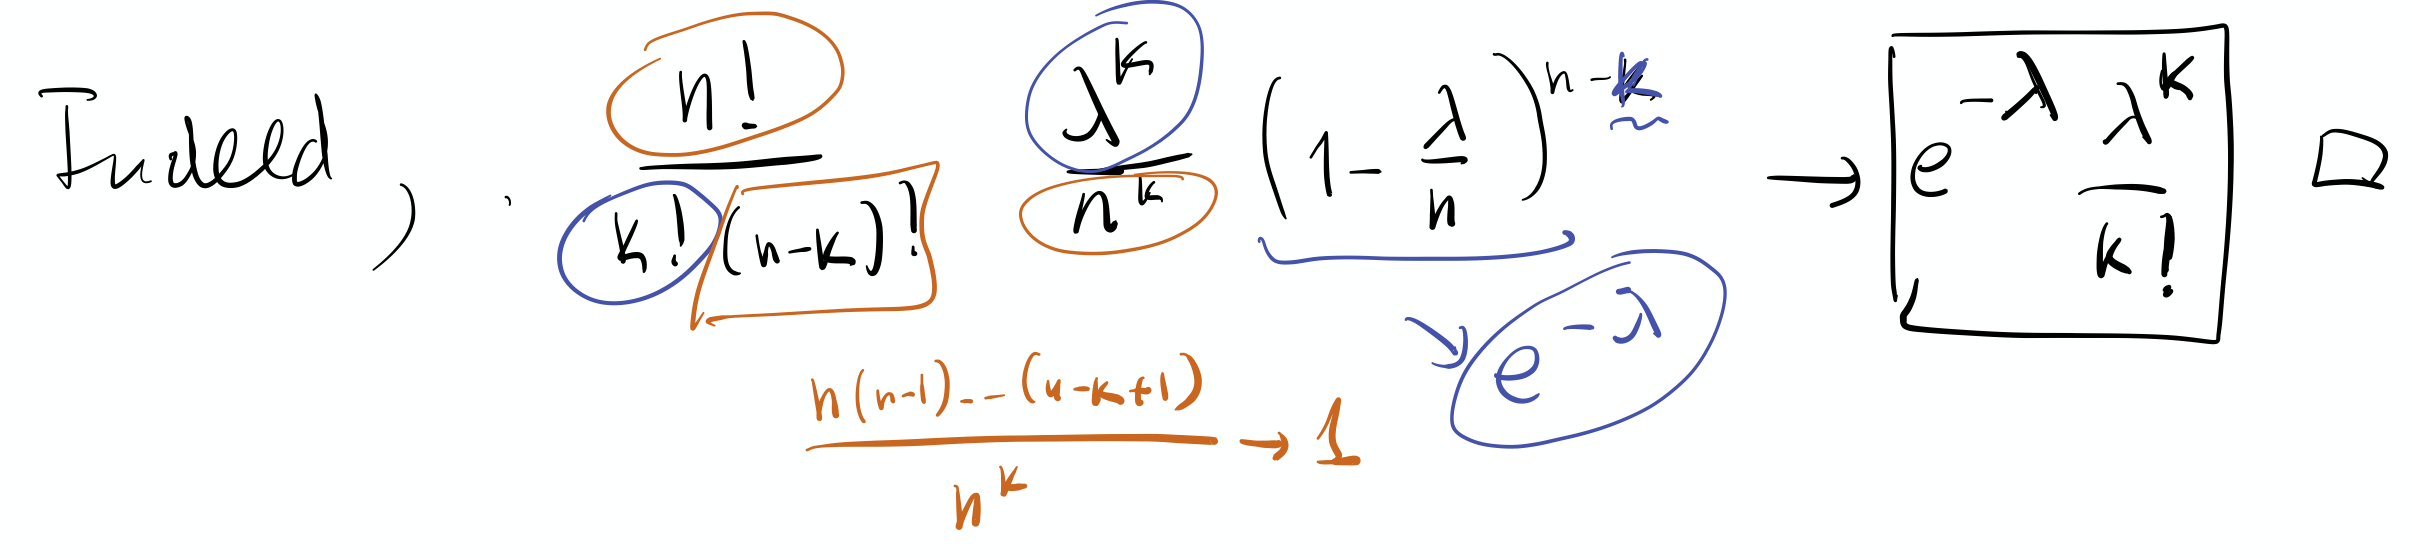 Indeed, $\frac{n!}{k!(n-k)!} \frac{\lambda^k}{n^k} \left(1 - \frac{\lambda}{n}\right)^{n-k} \to \boxed{e^{-\lambda} \frac{\lambda^k}{k!}}$ □
$\to e^{-\lambda}$
$\frac{n(n-1)--(n-k+1)}{n^k} \to 1$